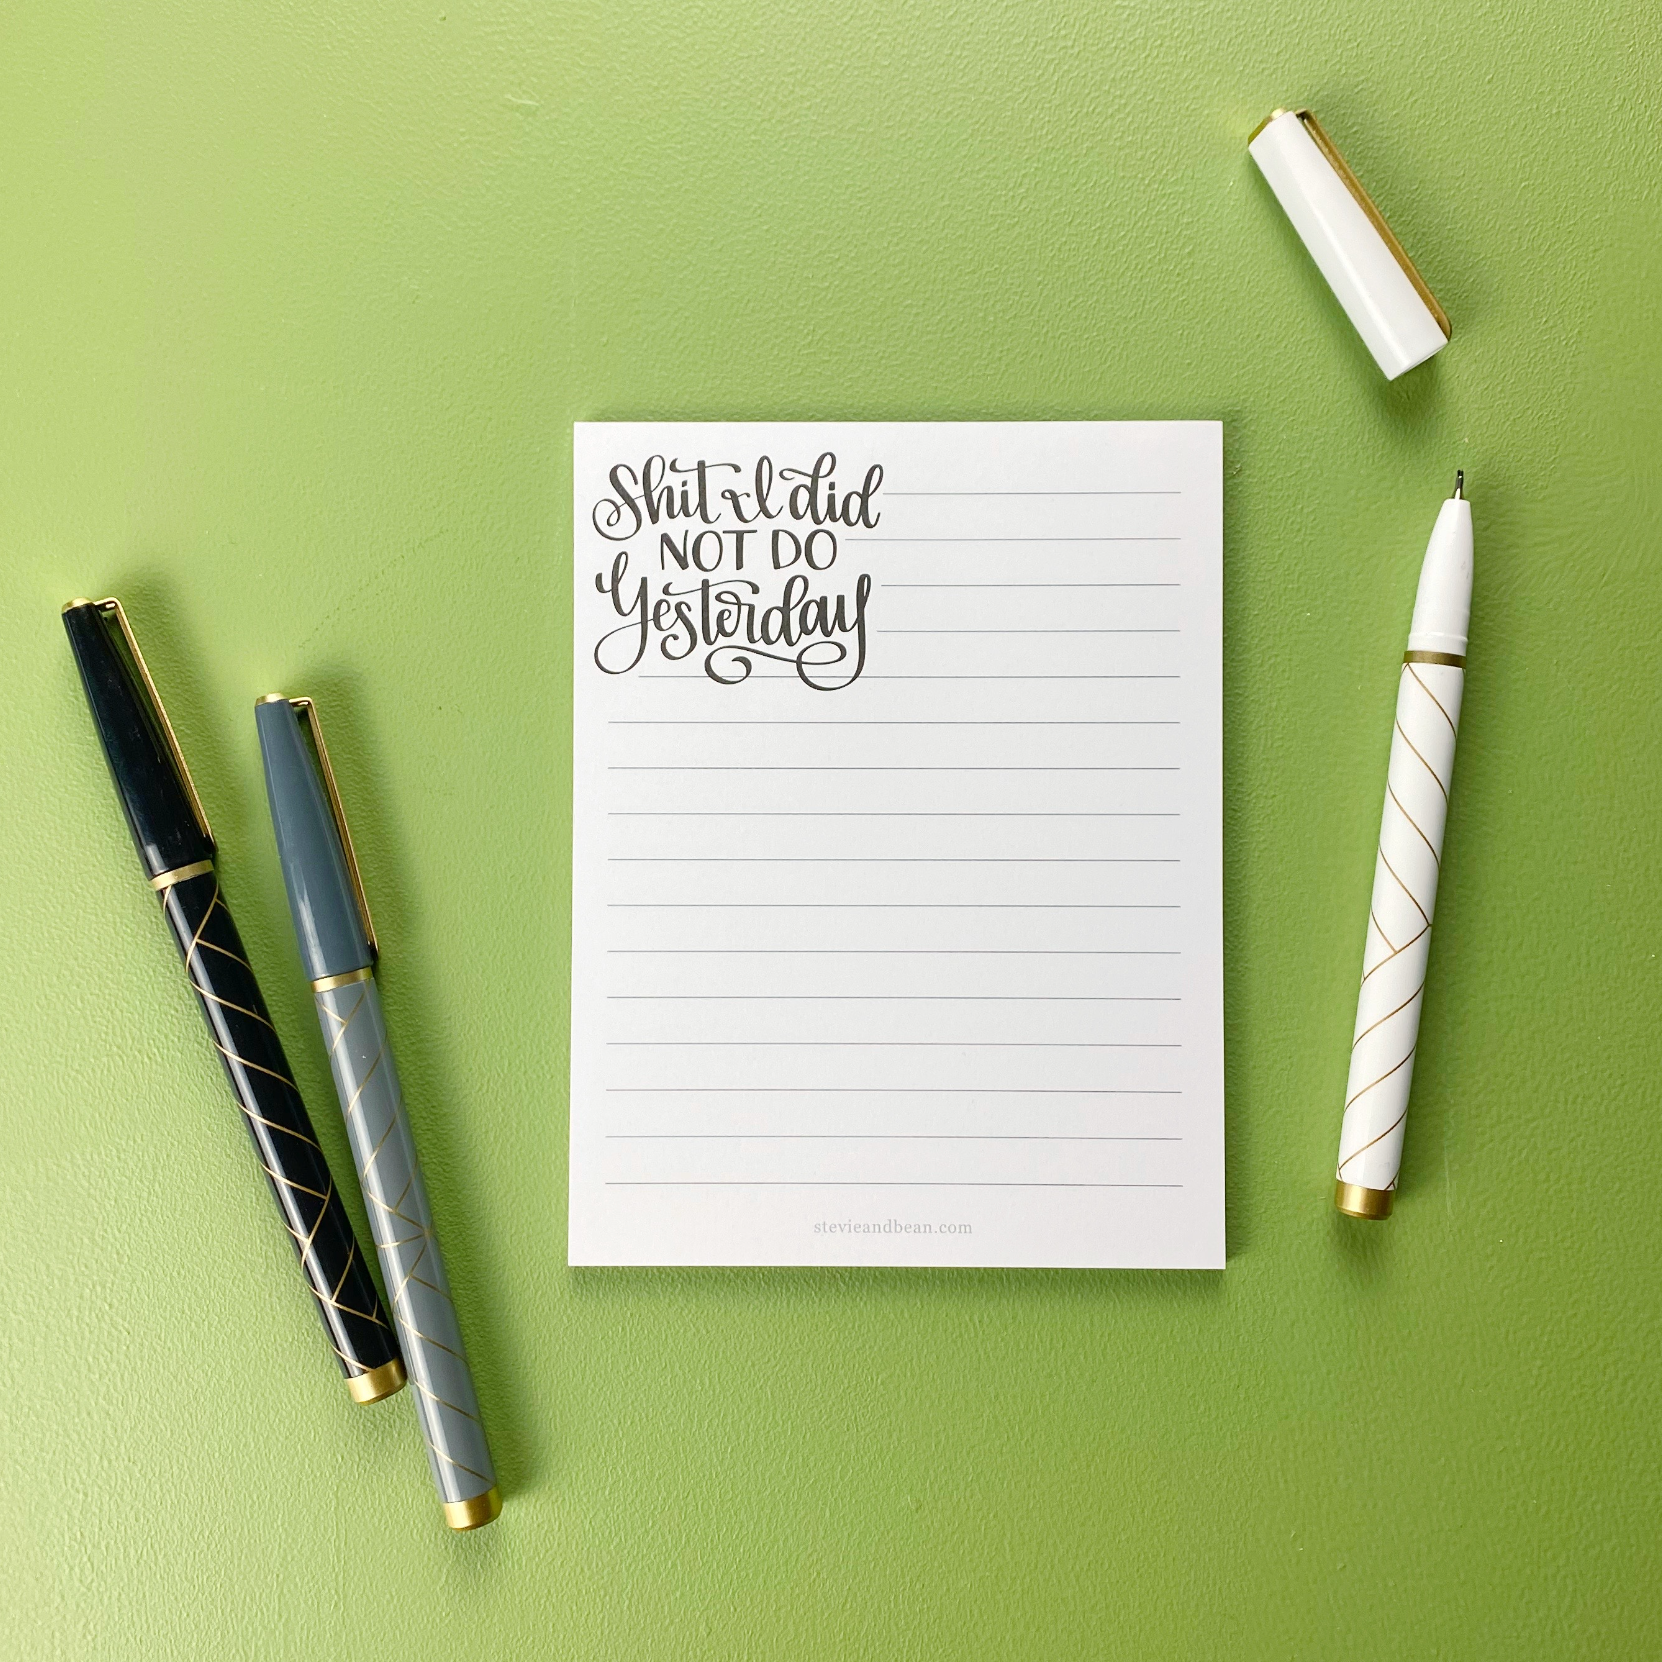 Shit I did
NOT DO
Yesterday
stevieandbean.com